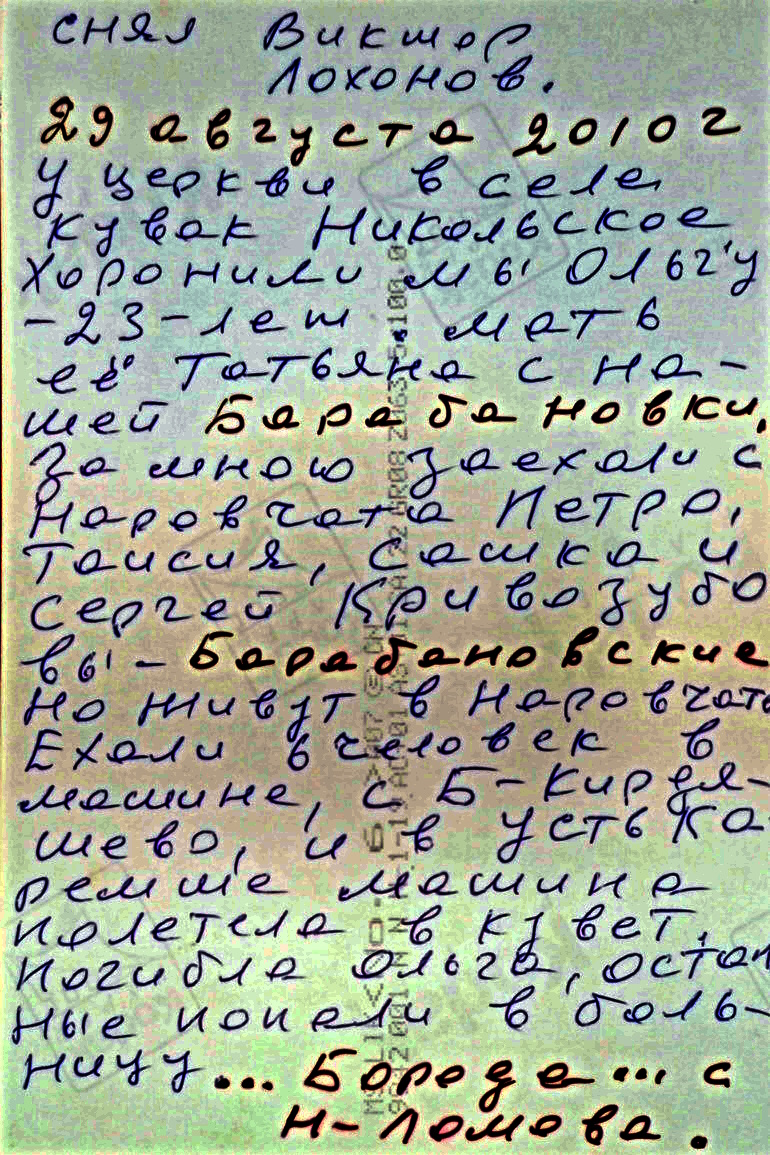 снял Виктор
Лохонов.
29 августа 2010г
У церкви в селе
Кувак Никольское
хоронили мы Ольгу
-23-лет. мать
её Татьяна с на-
шей Барабановки,
За мною заехали с
Наровчата Петро,
Таисия, Сашка и
Сергей Кривозубо
вы - Барабановские
Но живут в Наровчате
Ехали 6 человек в
машине, с Б-Кирдя-
шево, и в Усть Ка-
ремше машина
полетела в кювет,
Погибла Ольга, осталь
ные попали в боль-
ницу... Борода... с
Н-Ломова.